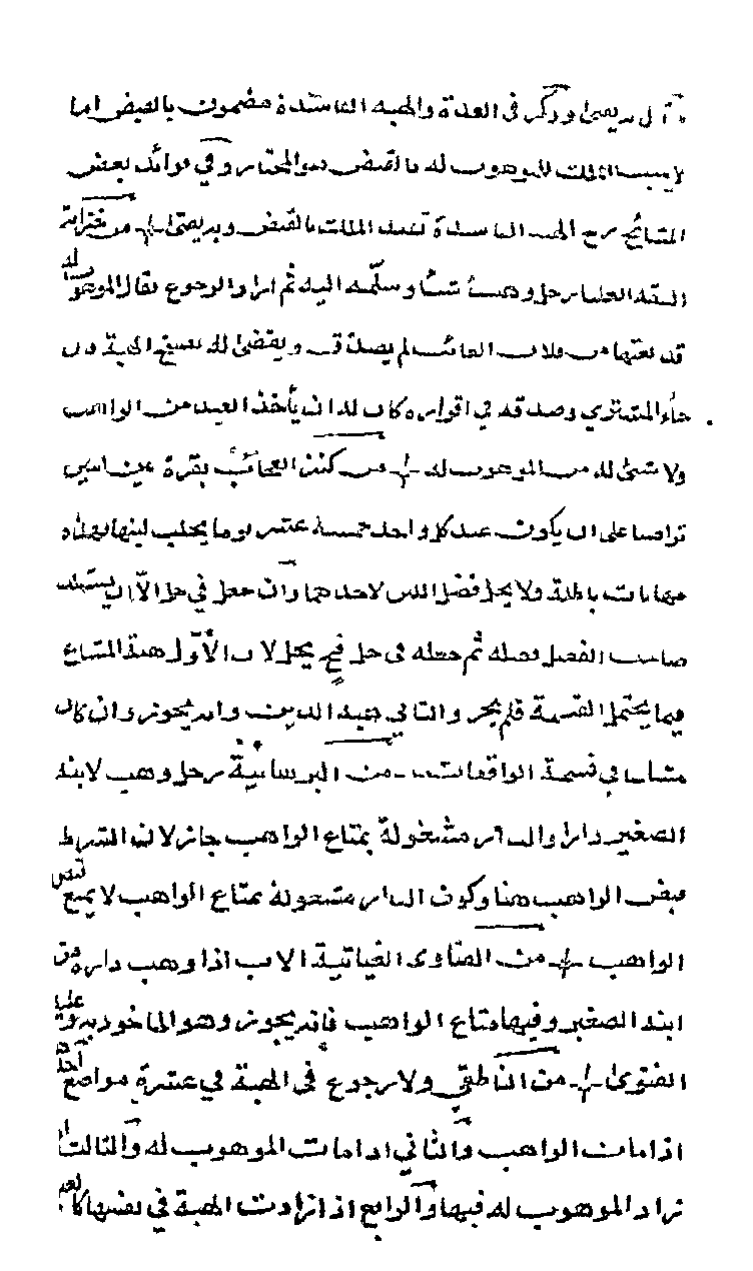 وذكر في العدة والهبة الفاسدة مضمونة بالقبض اما
لا يثبت الملك للموهوب له بالقبض هو المختار وفي فوائد بعض
المشائخ رح الهبة الفاسدة تفيد الملك بالقبض وبه يفتى من خزانة
الفقه رجل وهب شيئا وسلمه اليه ثم اراد الرجوع فقال الموهوب له
قد بعتها من فلان الغائب لم يصدق ويقضى له بفسخ الهبة فان
جاء المشتري وصدقه في اقراره كان له ان يأخذ العبد من الواهب
ولا شئ له من الموهوب له من كنز بقرة بين اثنين
تراضيا على ان يكون عند كل واحد خمسة عشر يوما يحلب لبنها فهذه
مهايات باطلة ولا يحل فضل اللبن لاحدهما وان جعل في حل الا ان يستهلك
صاحب الفضل فضله ثم جعله في حل فح يحل لان الاول هبة المشاع
فيما يحتمل القسمة فلم يجز والثاني هبة الدين وانه يجوز وان كان
مشاعا في قسمة الواقعات من رجل وهب لابنه
الصغير دارا والدار مشغولة بمتاع الواهب جاز لان الشرط
قبض الواهب هنا وكون الدار مشغولة بمتاع الواهب لا يمنع قبض
الواهب من الفتاوى الغياثية الاب اذا وهب داره من
ابنه الصغير وفيها متاع الواهب فانه يجوز وهو الماخوذ به وعليه
الفتوى من الناطفي ولا رجوع في الهبة في عشرة مواضع احدها
اذا مات الواهب والثاني اذا مات الموهوب له والثالث اذا
زاد الموهوب له فيها والرابع اذا زادت الهبة في نفسها كا